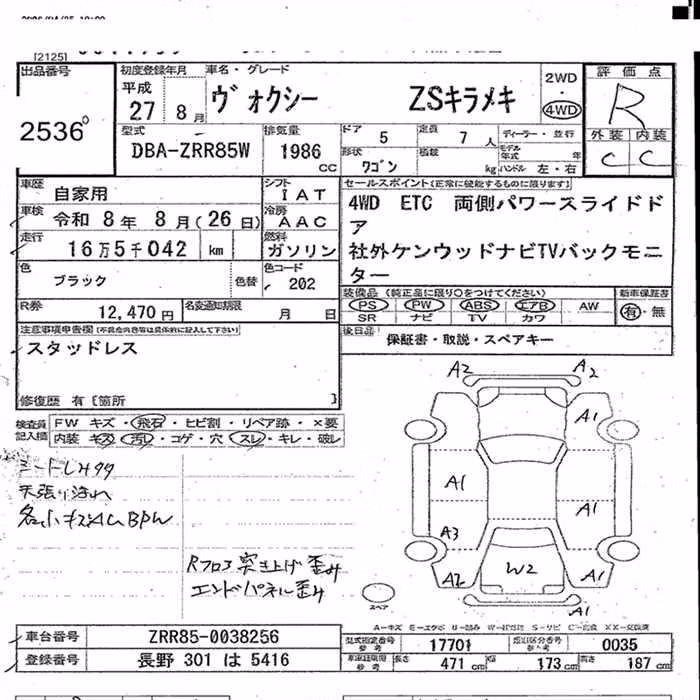 [2125]
出品番号
2536
初度登録年月
平成
27 8 月
車名・グレード
ヴォクシー ZSキラメキ
2WD
・
4WD
評価点
R
外装 内装
C C
型式
DBA-ZRR85W
排気量
1986 CC
ドア 5
定員 7 人
形状 ワゴン
積載 kg
ディーラー・並行
モデル年式 年
ハンドル 左・右
車歴 自家用
シフト IAT
車検 令和 8年 8月(26日)
冷房 AAC
走行 16万5千042 km
燃料 ガソリン
色 ブラック 色替
色コード 202
R券 12,470円
名変通知期限 月 日
セールスポイント(正常に機能するものに限ります)
4WD ETC 両側パワースライドド
ア
社外ケンウッドナビTVバックモニ
ター
装備品(純正品に限り〇をつけてください)
PS PW ABS エアB AW
SR ナビ TV カワ
新車保証書
有・無
後日品 保証書・取説・スペアキー
注意事項申告欄(不具合内容等は具体的に記入して下さい)
スタッドレス
修復歴 有[箇所 ]
検査員記入欄
FW キズ・飛石・ヒビ割・リペア跡・×要
内装 キズ・汚レ・コゲ・穴・スレ・キレ・破レ
天張り汚れ
Rフロア突き上げ歪み
エンドパネル歪み
A2 A2
A1
A1 A1
A3
A2 W2 A1
A1
スペア
車台番号 ZRR85-0038256
登録番号 長野 301 は 5416
型式指定番号 参考 17701
類別区分番号 参考 0035
車車検証用 参考 長さ 471 cm 幅 173 cm 高さ 187 cm